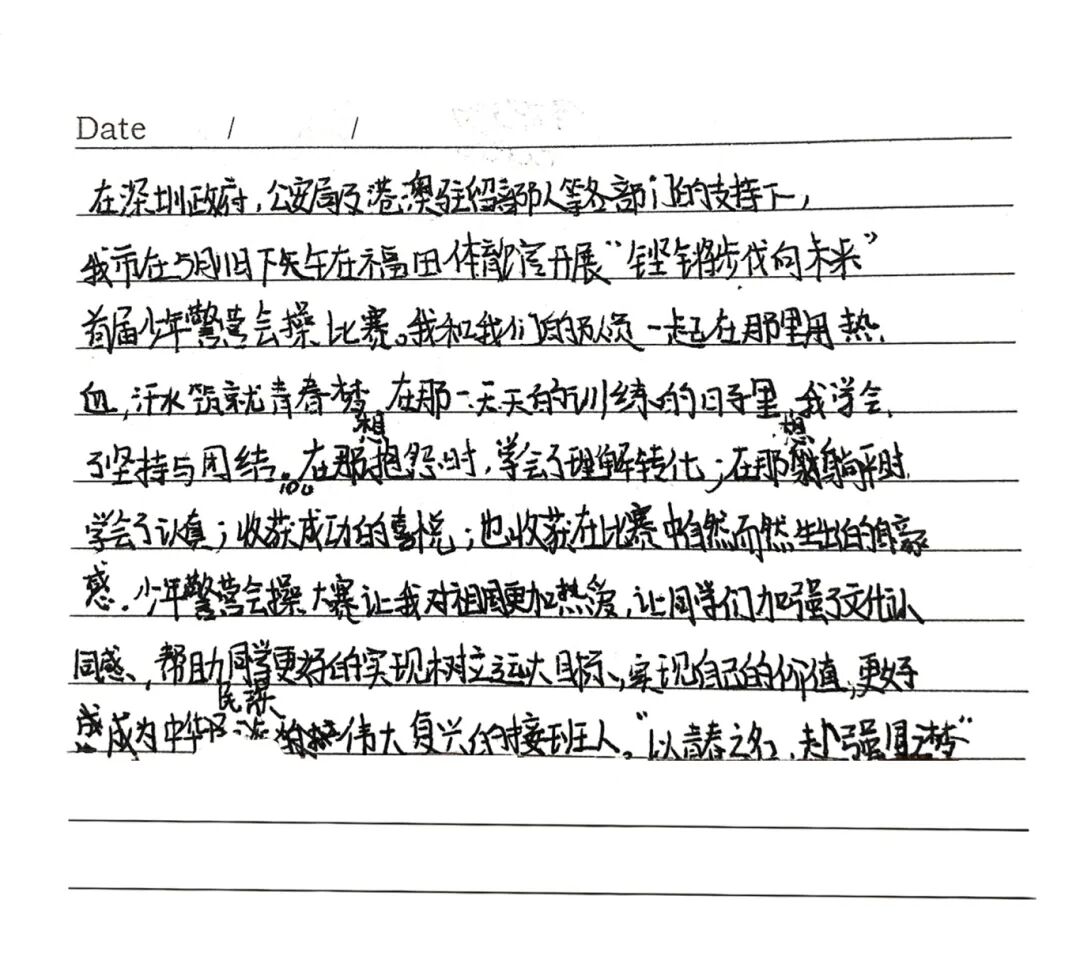 Date / /
在深圳政府,公安局及港澳驻留部队等各部门的支持下,
我市在5月11日下午在福田体育馆开展“铿锵步伐向未来”
首届少年警营会操比赛。我和我们的队员一起在那里用热
血,汗水筑就青春梦,在那一天天的训练的日子里,我学会
了坚持与团结。在那想抱怨时,学会了理解转化;在那想躺平时
学会了认真;收获成功的喜悦;也收获在比赛中自然而然生出的自豪
感.少年警营会操大赛让我对祖国更加热爱,让同学们加强了文化认
同感、帮助同学更好的实现树立远大目标、实现自己的价值,更好
成为中华民族伟大复兴的接班人。“以青春之名,赴强国之梦”